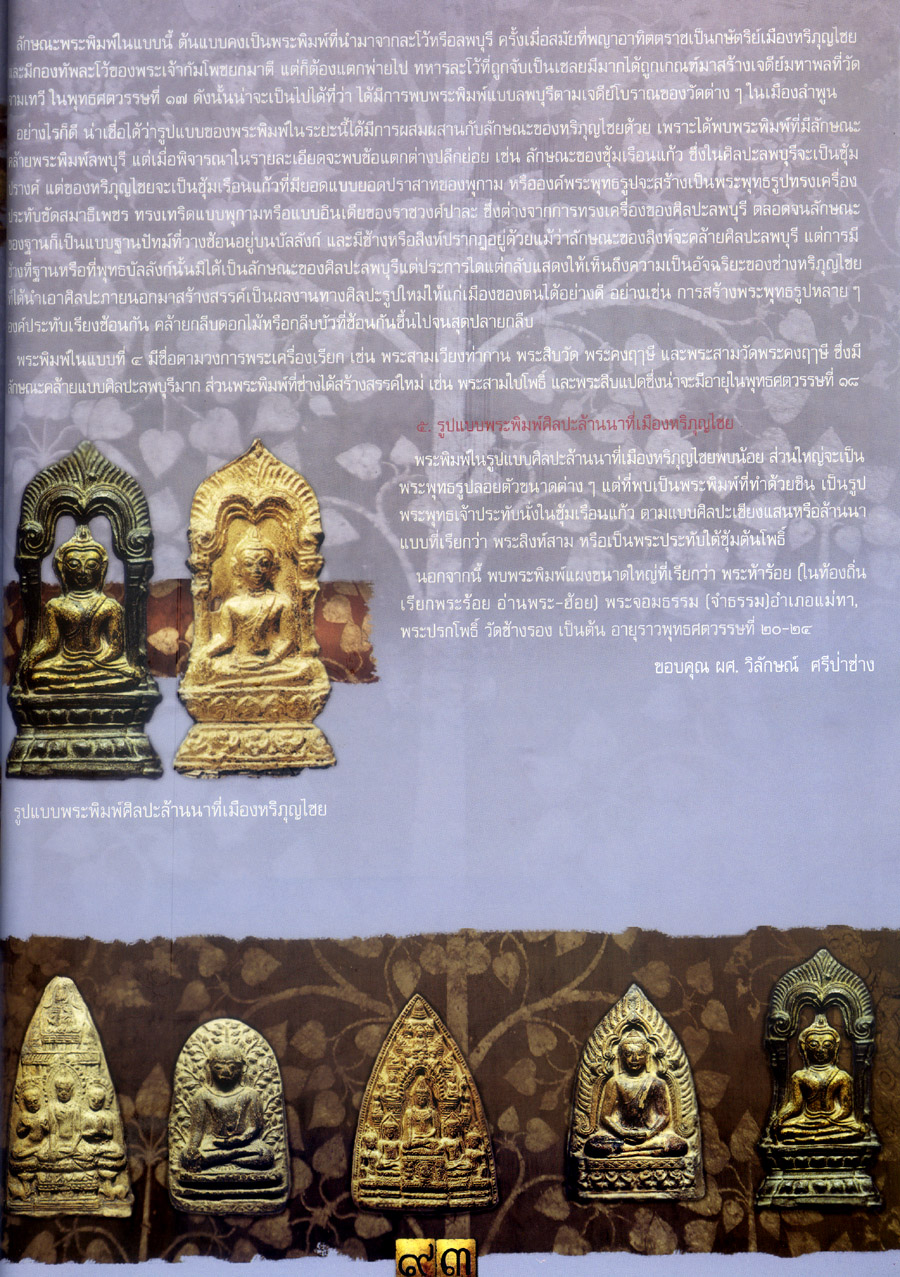 ลักษณะพระพิมพ์ในแบบนี้ ต้นแบบคงเป็นพระพิมพ์ที่นำมาจากละโว้หรือลพบุรี ครั้งเมื่อสมัยที่พญาอาทิตตราชเป็นกษัตริย์เมืองหริภุญไชย
และมีกองทัพละโว้ของพระเจ้ากัมโพชยกมาตี แต่ก็ต้องแตกพ่ายไป ทหารละโว้ที่ถูกจับเป็นเชลยมีมากได้ถูกเกณฑ์มาสร้างเจดีย์มหาพลที่วัด
จามเทวี ในพุทธศตวรรษที่ ๑๗ ดังนั้นน่าจะเป็นไปได้ที่ว่า ได้มีการพบพระพิมพ์แบบลพบุรีตามเจดีย์โบราณของวัดต่าง ๆ ในเมืองลำพูน
อย่างไรก็ดี น่าเชื่อได้ว่ารูปแบบของพระพิมพ์ในระยะนี้ได้มีการผสมผสานกับลักษณะของหริภุญไชยด้วย เพราะได้พบพระพิมพ์ที่มีลักษณะ
คล้ายพระพิมพ์ลพบุรี แต่เมื่อพิจารณาในรายละเอียดจะพบข้อแตกต่างปลีกย่อย เช่น ลักษณะของซุ้มเรือนแก้ว ซึ่งในศิลปะลพบุรีจะเป็นซุ้ม
ปรางค์ แต่ของหริภุญไชยจะเป็นซุ้มเรือนแก้วที่มียอดแบบยอดปราสาทของพุกาม หรือองค์พระพุทธรูปจะสร้างเป็นพระพุทธรูปทรงเครื่อง
ประทับขัดสมาธิเพชร ทรงเทริดแบบพุกามหรือแบบอินเดียของราชวงศ์ปาละ ซึ่งต่างจากการทรงเครื่องของศิลปะลพบุรี ตลอดจนลักษณะ
ของฐานก็เป็นแบบฐานปัทม์ที่วางซ้อนอยู่บนบัลลังก์ และมีช้างหรือสิงห์ปรากฏอยู่ด้วยแม้ว่าลักษณะของสิงห์จะคล้ายศิลปะลพบุรี แต่การมี
ช้างที่ฐานหรือที่พุทธบัลลังก์นั้นมิได้เป็นลักษณะของศิลปะลพบุรีแต่ประการใดแต่กลับแสดงให้เห็นถึงความเป็นอัจฉริยะของช่างหริภุญไชย
ที่ได้นำเอาศิลปะภายนอกมาสร้างสรรค์เป็นผลงานทางศิลปะรูปใหม่ให้แก่เมืองของตนได้อย่างดี อย่างเช่น การสร้างพระพุทธรูปหลาย ๆ
องค์ประทับเรียงซ้อนกัน คล้ายกลีบดอกไม้หรือกลีบบัวที่ซ้อนกันขึ้นไปจนสุดปลายกลีบ
พระพิมพ์ในแบบที่ ๔ มีชื่อตามวงการพระเครื่องเรียก เช่น พระสามเวียงท่ากาน พระสิบวัด พระคงฤๅษี และพระสามวัดพระคงฤๅษี ซึ่งมี
ลักษณะคล้ายแบบศิลปะลพบุรีมาก ส่วนพระพิมพ์ที่ช่างได้สร้างสรรค์ใหม่ เช่น พระสามใบโพธิ์ และพระสิบแปดซึ่งน่าจะมีอายุในพุทธศตวรรษที่ ๑๘
๕. รูปแบบพระพิมพ์ศิลปะล้านนาที่เมืองหริภุญไชย
พระพิมพ์ในรูปแบบศิลปะล้านนาที่เมืองหริภุญไชยพบน้อย ส่วนใหญ่จะเป็น
พระพุทธรูปลอยตัวขนาดต่าง ๆ แต่ที่พบเป็นพระพิมพ์ที่ทำด้วยชิน เป็นรูป
พระพุทธเจ้าประทับนั่งในซุ้มเรือนแก้ว ตามแบบศิลปะเชียงแสนหรือล้านนา
แบบที่เรียกว่า พระสิงห์สาม หรือเป็นพระประทับใต้ซุ้มต้นโพธิ์
นอกจากนี้ พบพระพิมพ์แผงขนาดใหญ่ที่เรียกว่า พระห้าร้อย (ในท้องถิ่น
เรียกพระร้อย อ่านพระ-ฮ้อย) พระจอมธรรม (จำธรรม)อำเภอแม่ทา,
พระปรกโพธิ์ วัดช้างรอง เป็นต้น อายุราวพุทธศตวรรษที่ ๒๐-๒๔
ขอบคุณ ผศ. วิลักษณ์ ศรีป่าซาง
รูปแบบพระพิมพ์ศิลปะล้านนาที่เมืองหริภุญไชย
๙๓